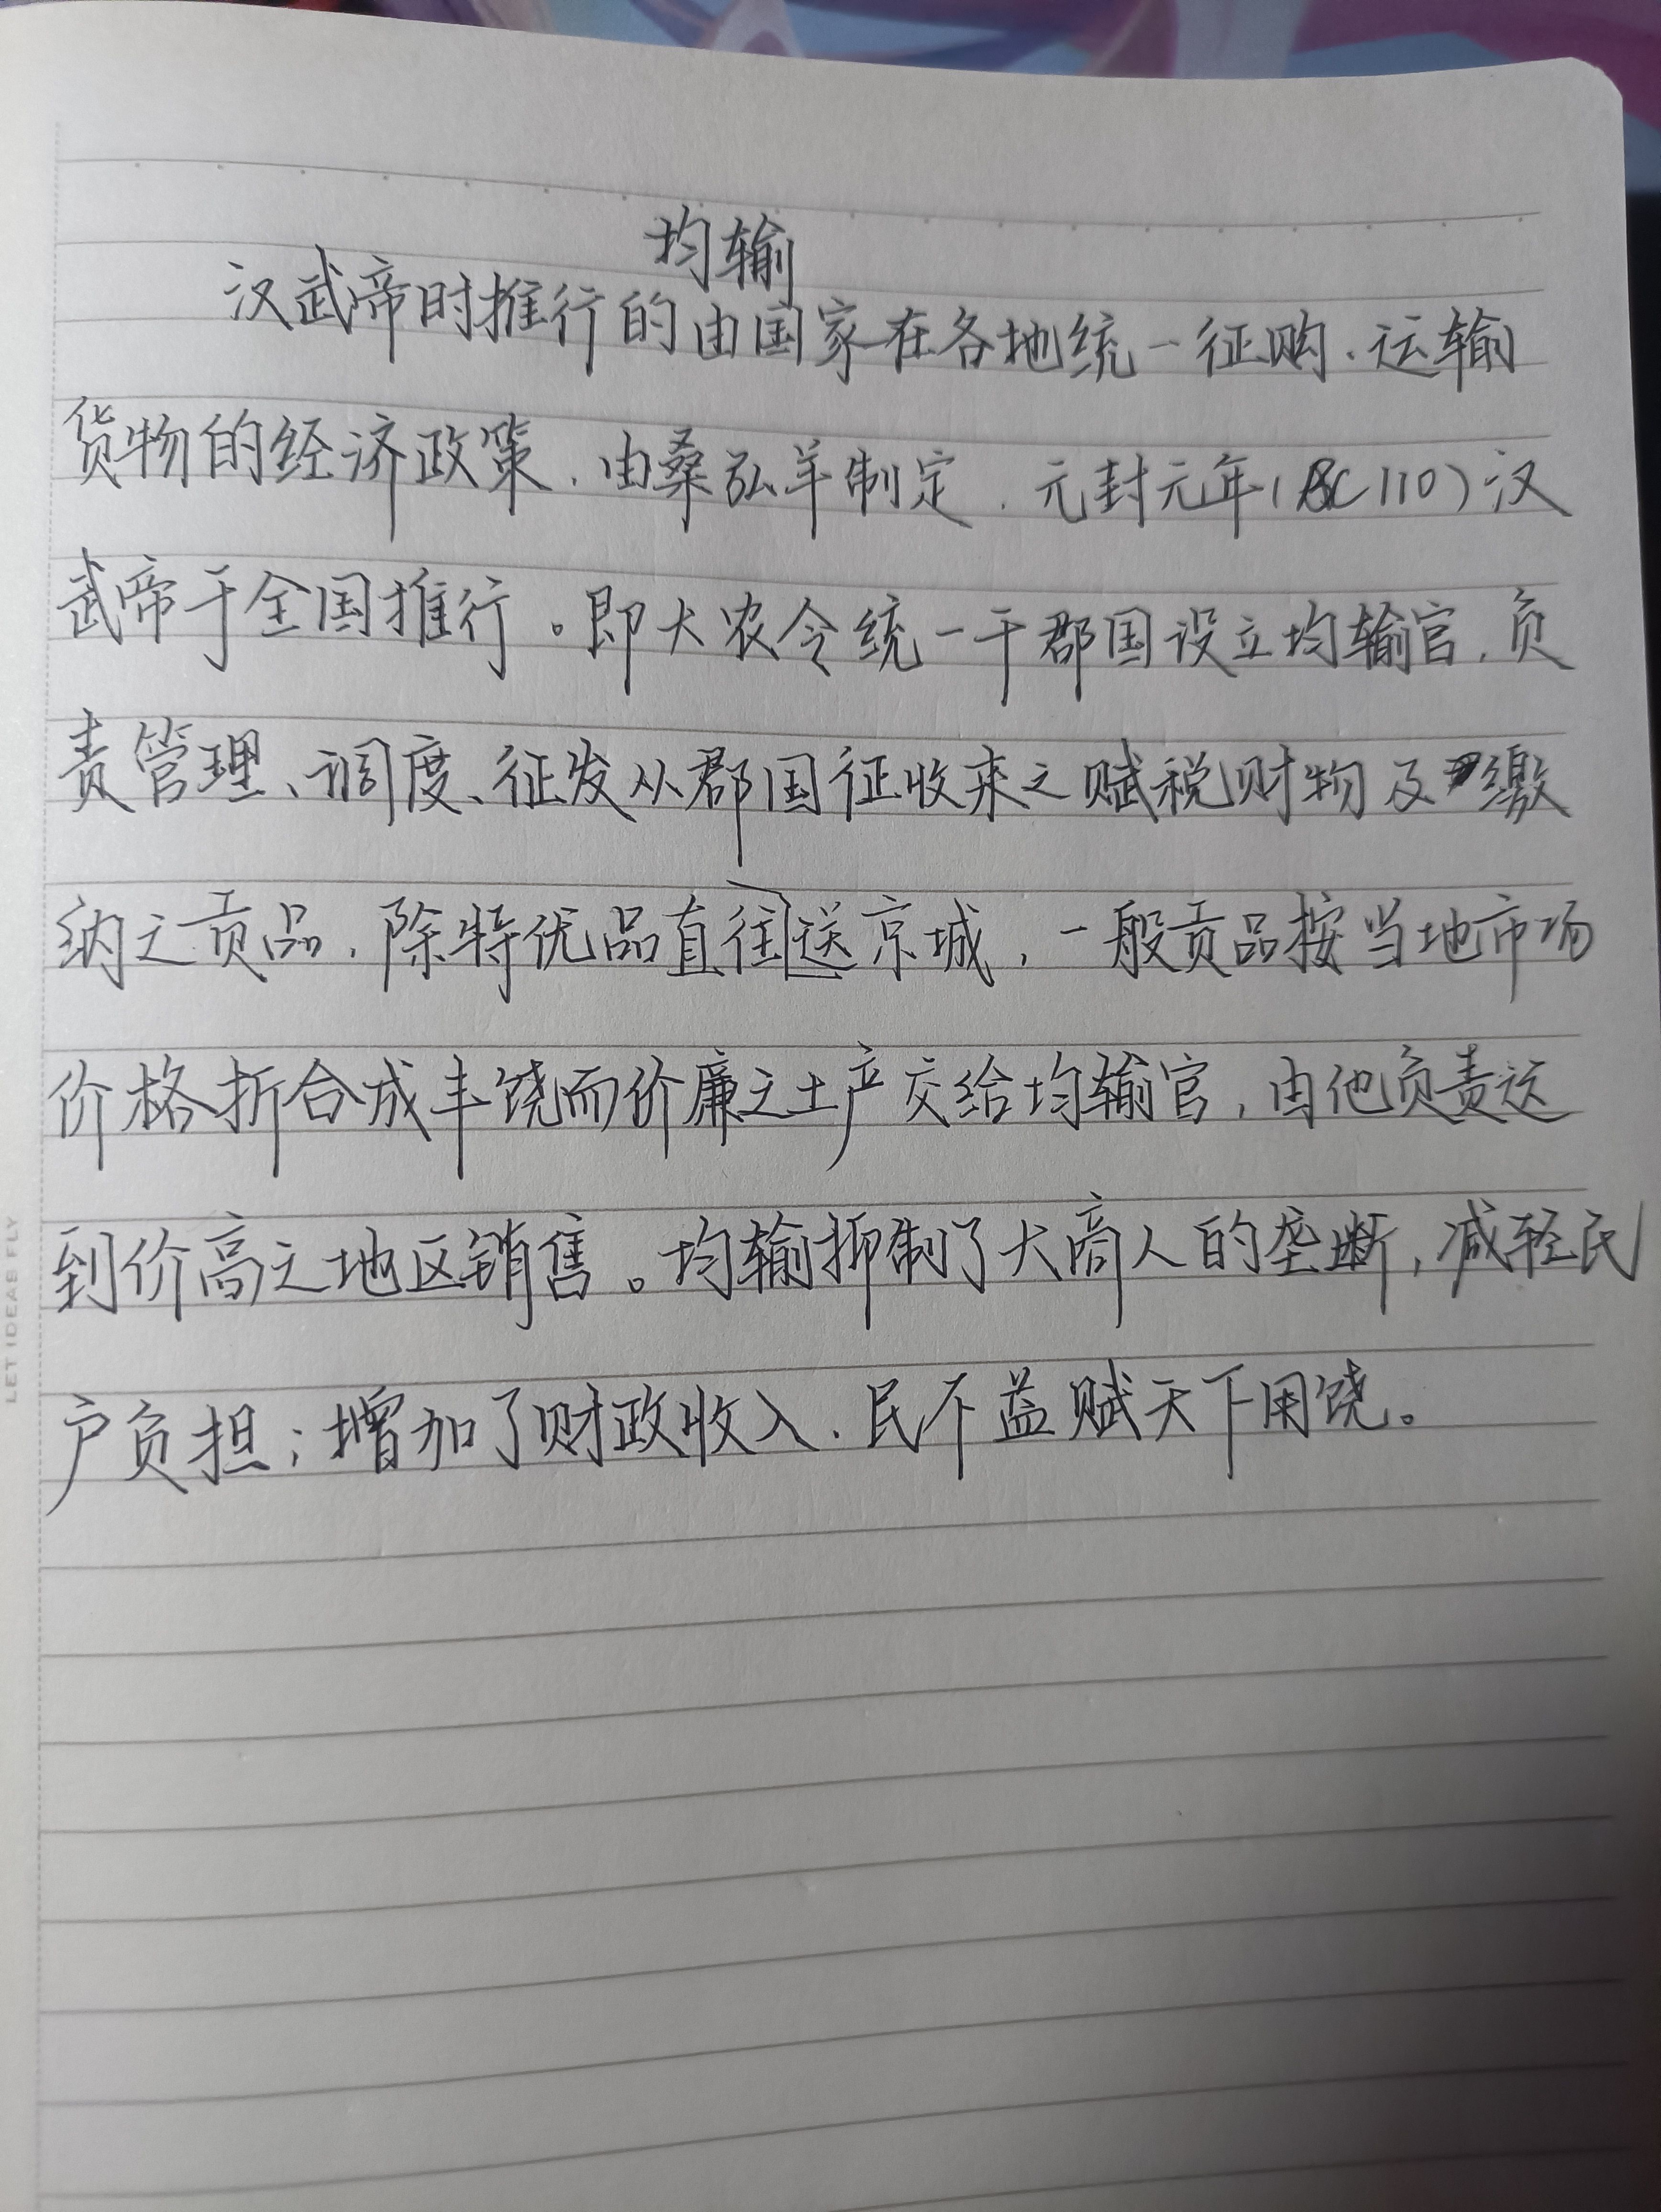 均输
汉武帝时推行的由国家在各地统一征购、运输
货物的经济政策，由桑弘羊制定，元封元年(BC110)汉
武帝于全国推行。即大农令统一于郡国设立均输官，负
责管理、调度、征发从郡国征收来之赋税财物及缴
纳之贡品，除特优品直往送京城，一般贡品按当地市场
价格折合成丰饶而价廉之土产交给均输官，由他负责运
到价高之地区销售。均输抑制了大商人的垄断，减轻民
户负担；增加了财政收入，民不益赋天下用饶。
LET IDEAS FLY